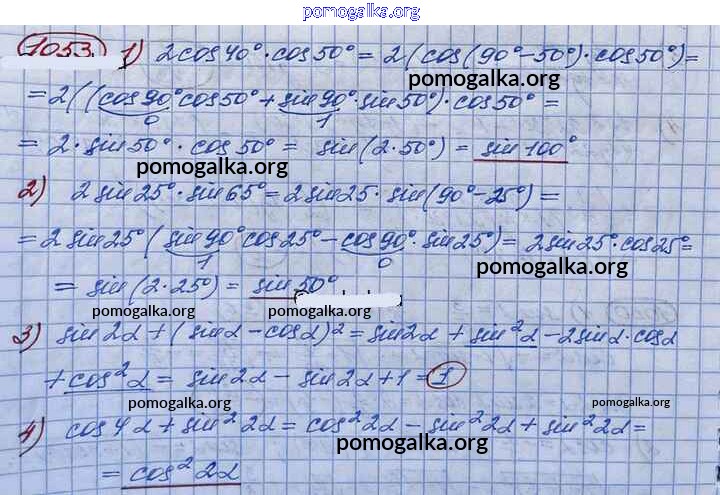 pomogalka.org
1053. 1) 2cos40°·cos50° = 2(cos(90°-50°)·cos50°) =
pomogalka.org
= 2((cos90°cos50° + sin90°·sin50°)·cos50° =
0 1
= 2·sin50°·cos50° = sin(2·50°) = sin100°
pomogalka.org
2) 2sin25°·sin65° = 2sin25·sin(90°-25°) =
= 2sin25°(sin90°cos25° - cos90°·sin25°) = 2sin25°·cos25° =
1 0
pomogalka.org
= sin(2·25°) = sin50°
pomogalka.org
pomogalka.org
3) sin2α + (sinα - cosα)² = sin2α + sin²α - 2sinα·cosα
+ cos²α = sin2α - sin2α + 1 = 1
pomogalka.org
pomogalka.org
4) cos4α + sin²2α = cos²2α - sin²2α + sin²2α =
pomogalka.org
= cos²2α